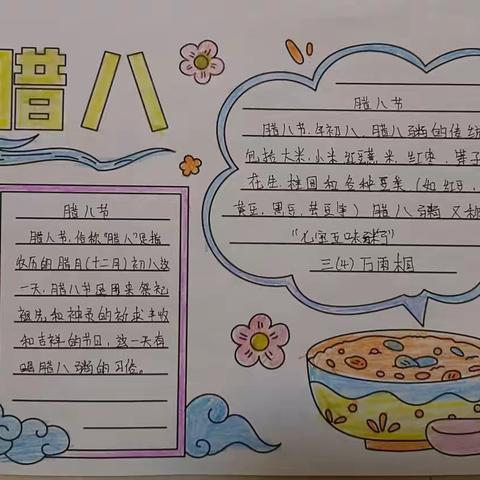 腊八
腊八节
腊人节,俗称"腊八"是指
农历的腊月(十二月)初八这
一天,腊八节是用来祭祀
祖先和神灵的祈求丰收
和吉祥的节日,这一天有
喝腊八粥的习俗。
腊八节
腊八节,年初八,腊八粥的传统
包括大米,小米 红薏米,红枣,等
花生,桂圆和各种豆类(如红豆,
黄豆,黑豆,芸豆等)腊八粥又
"七宝五味粥"
三(4)万雨桐